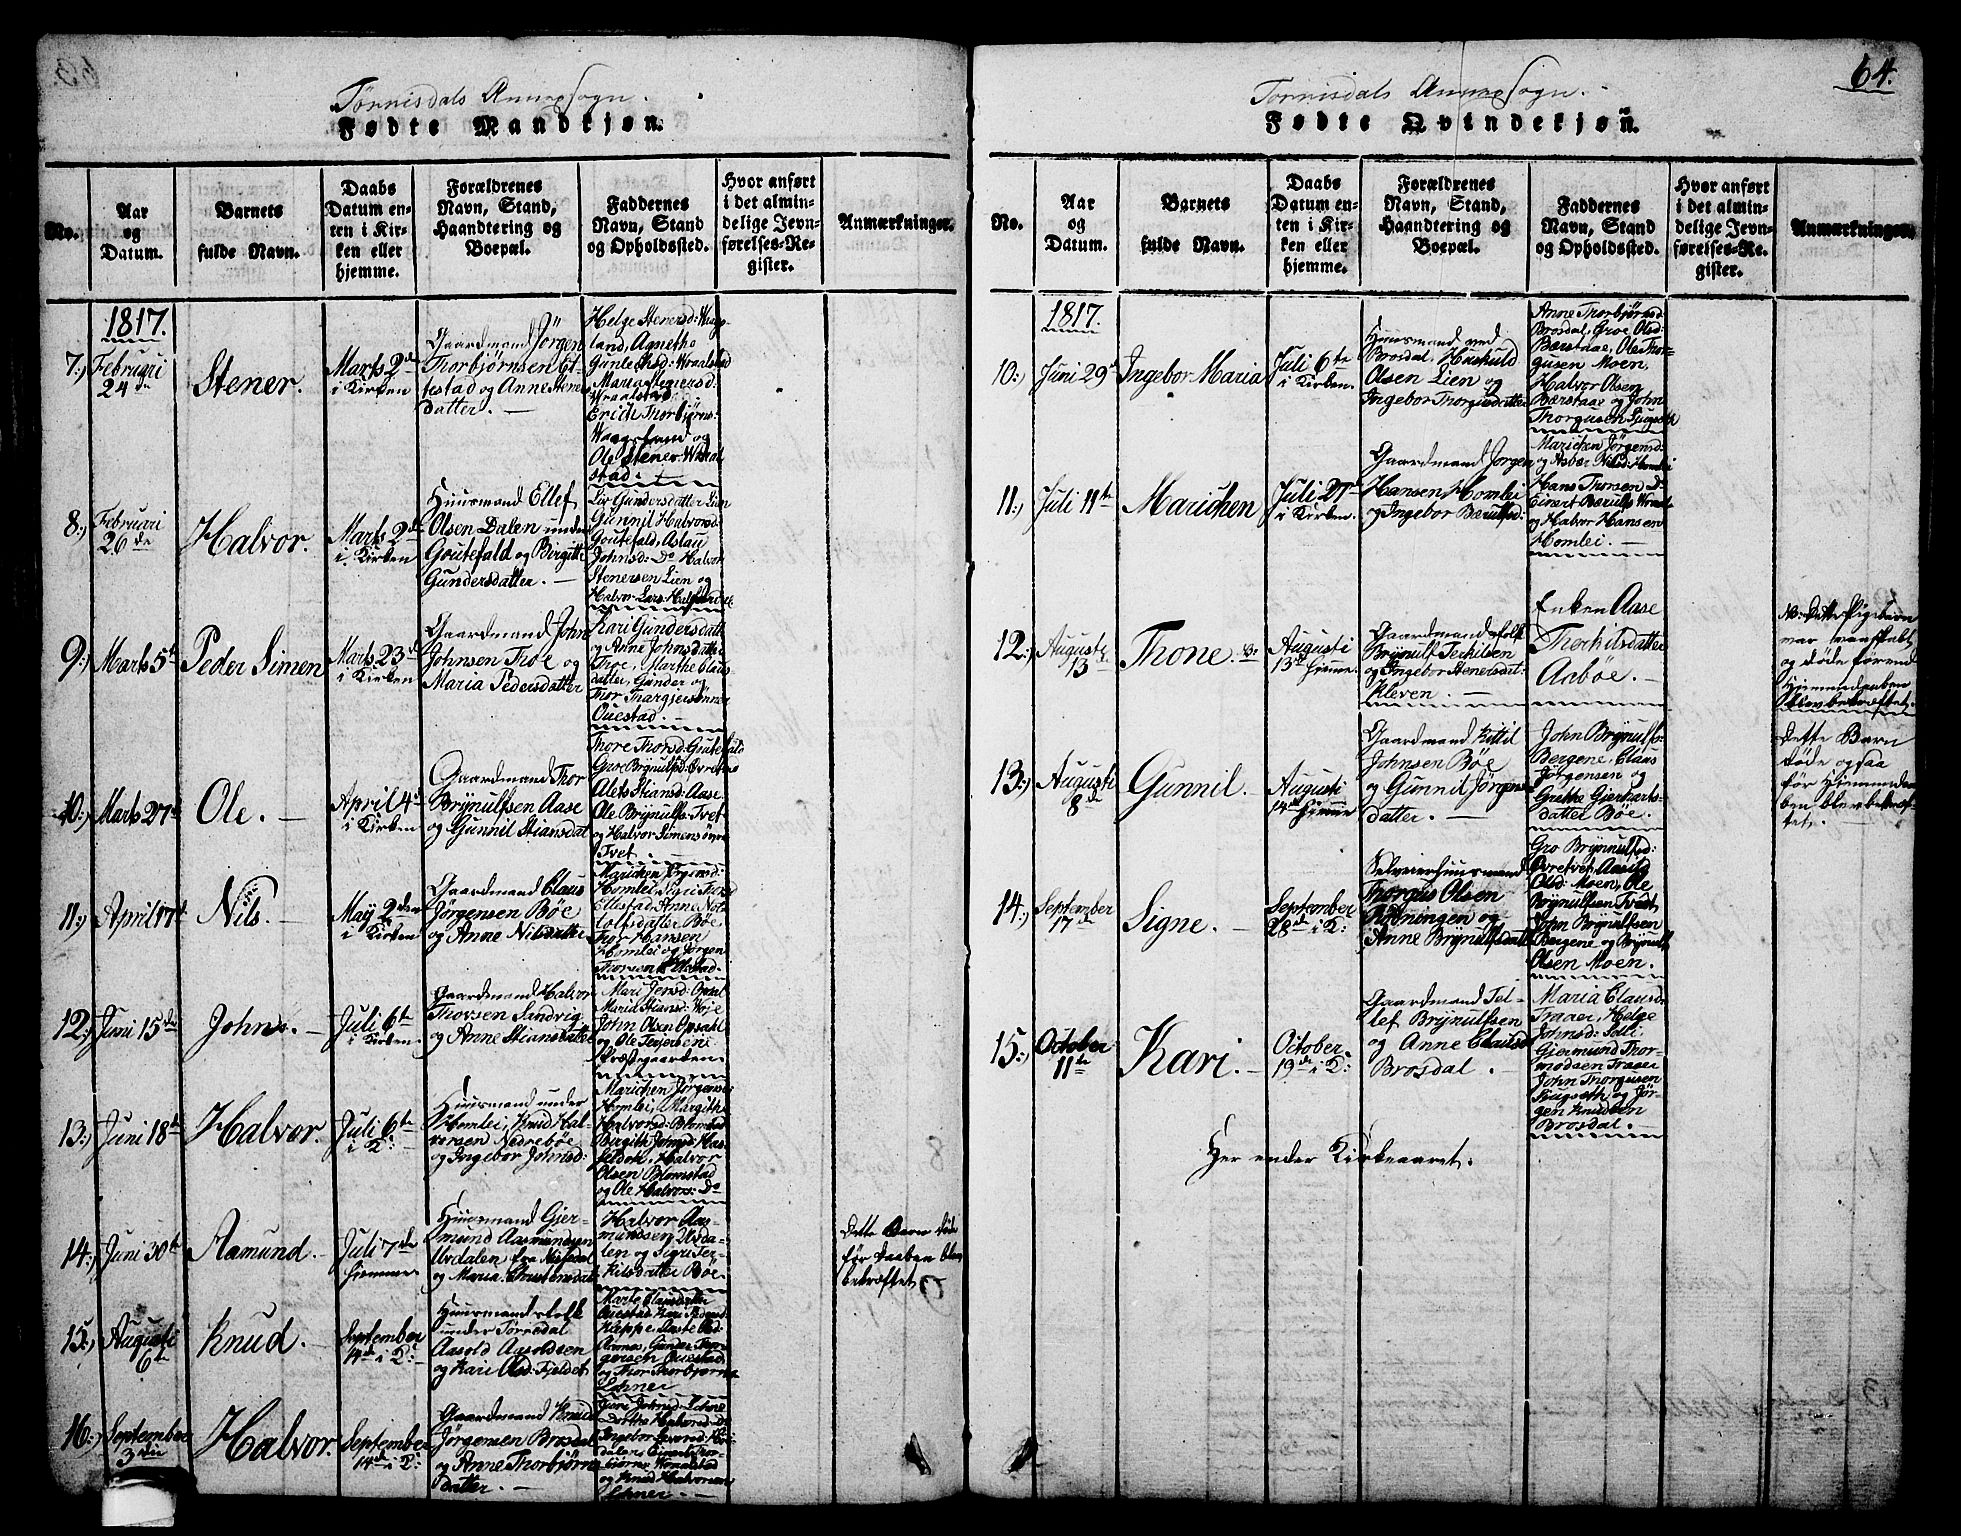 Tørrisdals Annexsogn.
Fødte Mandkjøn.
No.
Aar
og
Datum.
Barnets
fulde Navn.
Daabs
Datum en-
ten i Kir-
ken eller
hjemme.
Forældrenes
Navn, Stand,
Haandtering og
Boepæl.
Faddernes
Navn, Stand
og Opholdssted.
Hvor anført
i det almin-
delige Jevn-
førelses-Re-
gister.
Anmærkninger.
1817.
7.)
Februari
24de
Stener.
Marts 2de
i Kirken
Gaardmand Jørgen
Thorbjørnsen
og Anne Steners
datter.
Helge Stenersd:
land, Agnethe
Gunleiksd: Vraalstad
Vraalstad,
Erich Thorbjørns:
og
Ole Stener: Vraal
stad:
8.)
Februari
26de
Halvor.
Marts 2de
i Kirken
Huusmand Ellef
Olsen Dalen under
Goutefald og Birgitte
Gundersdatter.
Liv Gundersdatter Lien
Gunnil Halvorsd:
Goutefald, Aslau
Johnsd: Do Halvor
Stenersen Lien og
Halvor Lars:
9.)
Marts 5te
Peder Simen
Marts 23de
i Kirken
Gaardmand John
Johnsen Troe og
Maria Pedersdatter
Kari Gundersdatt
og Anne Johnsdatter
Troe, Marthe Claus
datter, Gunder og
Thor Thargiersønner
Ouestad.
10.)
Marts 27de
Ole.
April 4de
i Kirken
Gaardmand Thor
Brynulfsen Aase
og Gunnil Stiansdat
Thore Thorsd: Goutefald
Gro Brynulfsd:
Alets Stiansd: Aase
Ole Brynulfs: Tvet
og Halvor Simensønn
Tvet.
11.)
April 17de
Nils.
May 2den
i Kirken
Gaardmand Claus
Jørgensen Bøe
og Anne Nilsdatter
Marichen Jørgensd:
Homlei, Siri Thorsd
Ellestad, Anne
datter Bøe
Thor Hansen
Homlei og Jørgen
Thorsen
12.)
Juni 15de
John.
Juli 6te
i Kirken
Gaardmand Halvor
Thorsen Sandvig
og Anne Stiansdatter
Mari Jensd: Opsal
Maria Stiansd:
John Olsen Opsahl
og Ole
Præstegaarden.
13.)
Juni 18de
Halvor.
Juli 6te
i D:
Huusmand under
Homlei, Knud Hal
versen Nedrebøe
og Ingebor Johnsd:
Marichen Jørgens:
Homlei, Margith
Halvorsd: Blomstad
Bergith Johnsd:
Halvor
Olsen Blomstad
og Ole Halvors: Do
14.)
Juni 30te
Aamund.
Juli 7de
hiemme
Huusmand Gjer-
mund Aasmundsen
Urdalen fra Nissedal
og Maria Christensdat
Halvor Aas-
mundsen Urda-
len og Sigri Ter-
kilsdatter Bøe.
Dette Barn døde
før Daaben blev
bekræftet
15.)
Augusti
6te
Knud.
September
14de i D:
Huusmandsfolk
under Tørrisdal
Aasold Aasoldsen
og Kari Olsd: Fieldet
Marte Clausdatter
Ouestad Kari
Aarnes, Gunder Thor
gersen Ouestad
og Thor Thorbjørns
16.)
September
3die
Halvor.
September
14de i D:
Gaardmand Knud
Jørgensen Brosdal
og Anne Thorbjørns
datter.
Dorthe Halvorsd:
Ingebor
dalen, Eivert Thor-
Vraalstad
og Knud Halvorsen
64.
Tørrisdals Annexsogn.
Fødte Qvindekjøn.
No.
Aar
og
Datum.
Barnets
fulde Navn.
Daabs
Datum en-
ten i Kir-
ken eller
hjemme.
Forældrenes
Navn, Stand,
Haandtering og
Boepæl.
Faddernes
Navn, Stand
og Opholdssted.
Hvor anført
i det almin-
delige Jevn-
førelses-Re-
gister.
Anmærkninger.
1817.
10.)
Juni 29de
Ingebor Maria
Juli 6te
i Kirken.
Huusmand ved
Brosdal, Huskuld
Olsen Lien og
Ingebor Thorgusdatter
Anne Thorbjørnsd
Brosdal, Groe Olsd:
Bærstaae, Ole Thor-
gusen Moen,
Halvor Olsen
Bærstaae og John
Thorgusen
11.)
Juli 11te
Marichen
Juli 27de
i Kirken.
Gaardmand Jørgen
Hansen Homlei
og Ingebor Bærulfsd:
Marichen Jørgensd:
og Asbør Nilsd: Homlei
Hans Thorsen Do
Eivert Bærulfs:
og Halvor Hansen
Homlei.
12.)
Augusti
13de
Thone.
Augusti
13de hjemme.
Gaardmandsfolk
Brynulf Terkilsen
og Ingebor Stenersdat:
Kleven.
Enken Aase
Therkilsdatter
Aabøe.
NB: dette Pigebarn
var vanskabt
og døde førend
Hjemmedaaben
blev bekræftet.
13.)
Augusti
8de
Gunnil.
Augusti
14de hjemme
Gaardmand Kittil
Johnsen Bøe
og Gunnil Jørgens
datter.
John Brynulfs:
Bergene, Claus
Jørgensen og
Grethe Gierharts-
datter Bøe.
Dette Barn
døde ogsaa
før Hjemmedaa-
ben blev bekræf-
tet.
14.)
September
17de
Signe.
September
28de i D:
Selveierhuusmand
Thorgus Olsen
Rødningen og
Anne Brynulfsdatter
Gro Brynnulfsd:
Øvretvet, Aaslig
Olsd: Moen, Ole
Brynulfsen Tvedt
John Brynulfsen
Bergene og Brynulf
Olsen Moen.
15.)
October
11te
Kari.
October
19de i D:
Gaardmand Tel-
lef Brynulfsen
og Anne Clausd
Brosdal.
Maria Clausd
Traaer, Helge
Johnsd: Solli
Gjermund Thor-
modsen Traaer
John Thorgusen
og Jør-
gen Knudsen
Brosdal.
Her ender Kirkeaaret.